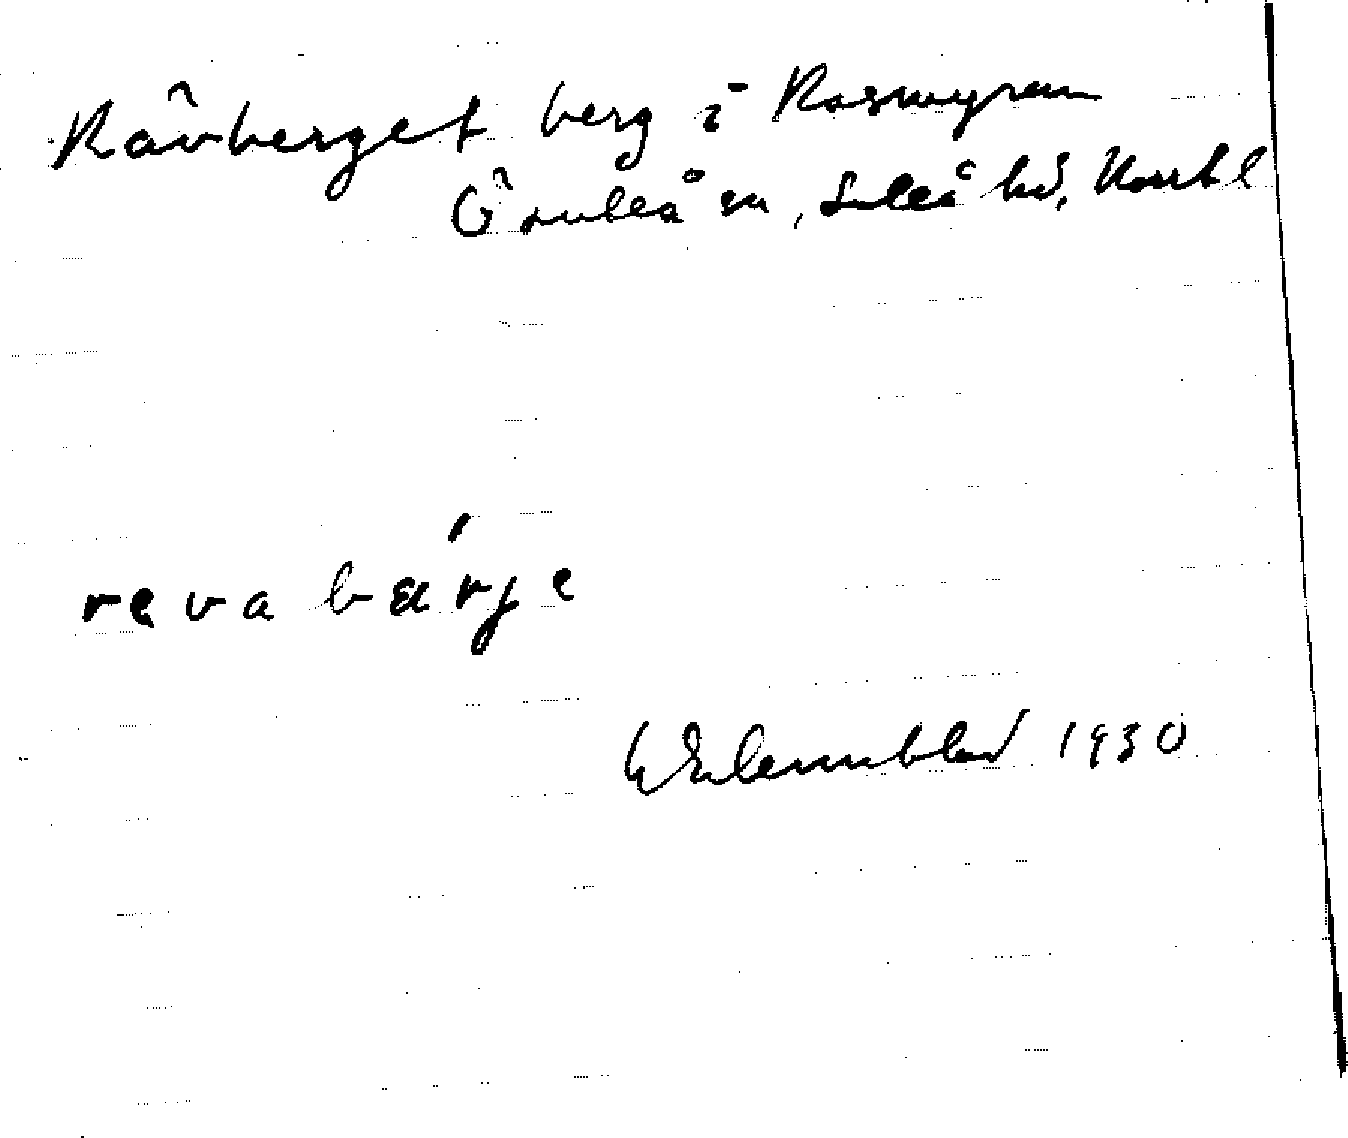 Rävberget berg i Rosmyran
Öfuleå sn, Luleå hd, Norrb l
reva bärje
W Ehlemblad 1930